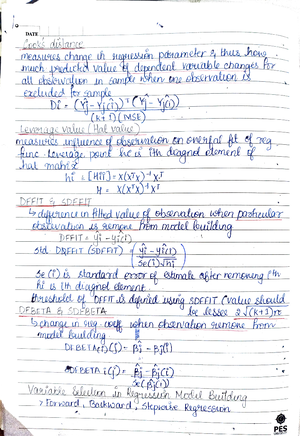 DATE
Cook's distance
measures change in regression parameter & thus how
much predicted value of dependent variable changes for
all observation in sample when one observation is
excluded for sample
Di = (Ŷj - Ŷj(i))ᵀ (Ŷj - Ŷj(i))
(k+1)(MSE)
Leverage value (Hat value)
measures influence of observation on overall fit of reg
func. leverage point hi is ith diagnol element of
hat matrix
hi = [Hii] = X(XᵀX)⁻¹Xᵀ
H = X(XᵀX)⁻¹Xᵀ
DFFIT & SDFFIT
↳ difference in fitted value of observation when particular
observation is remove from model building
DFFIT = ŷi - ŷi(i)
std DFFIT (SDFFIT) = ŷi - ŷi(i)
Se(i)√hi
Se(i) is standard error of estimate after removing ith
hi is ith diagnol element
threshold of DFFIT is defined using SDFFIT (value should
be lesser 2√(k+1)/n
DFBETA & SDFBETA
↳ change in reg coeff when observation remove from
model building
DFBETAi(j) = β̂j - β̂j(i)
β̂j - β̂j(i)
Se(β̂j(i))
Variable Selection in Regression Model Building
> Forward, Backward, Stepwise Regression
PES